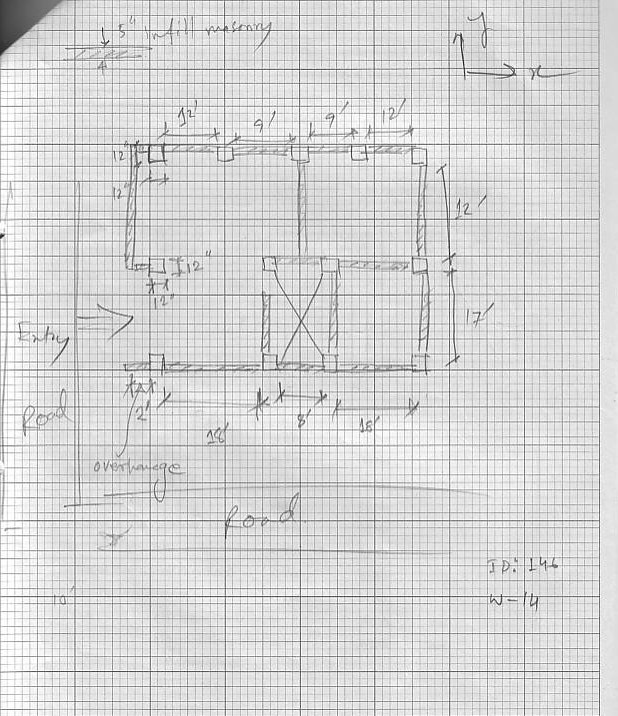 5" Infill masonry
y
x
12' 9' 9' 12'
12"
12"
12'
12"
12"
17'
Entry
Road
2' 18' 8' 18'
overhange
Road
10'
ID: 146
W-14